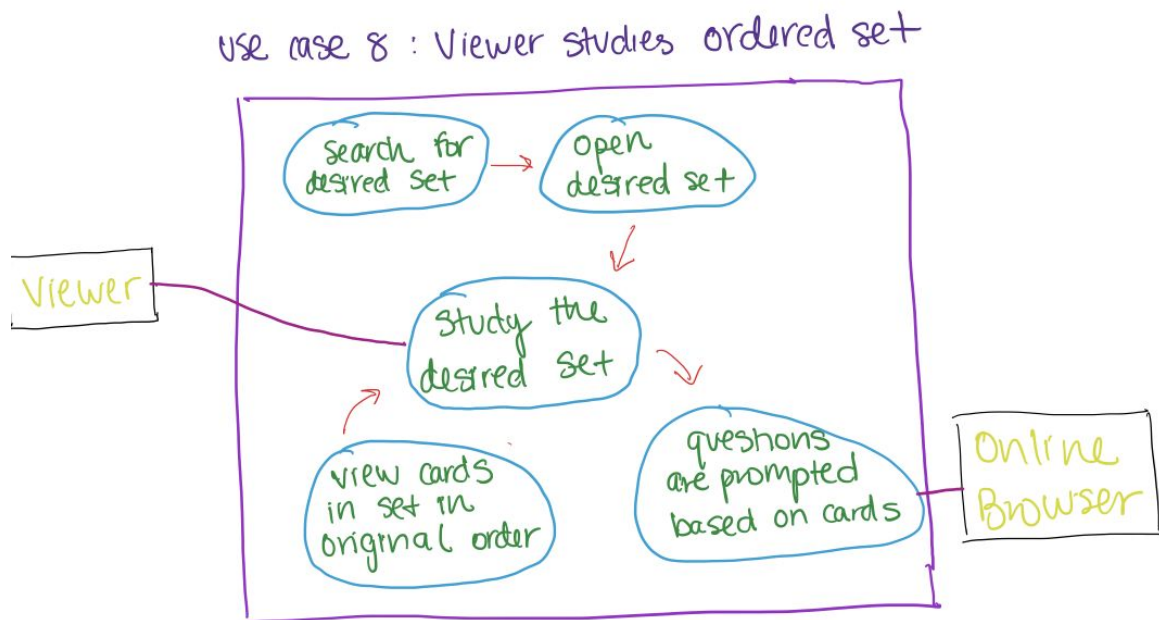 use case 8 : Viewer studies ordered set
search for
desired set
open
desired set
Viewer
Study the
desired set
view cards
in set in
original order
questions
are prompted
based on cards
Online
Browser